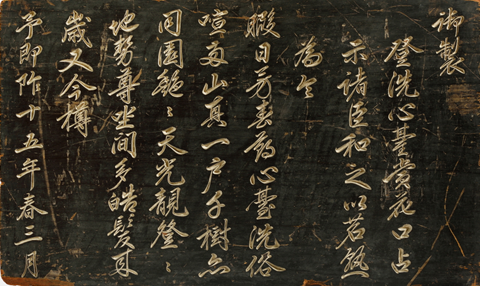 御製
登洗心臺賞花口占
示諸臣和之以
為令
暇日芳春心臺洗俗
喧山真一戶千樹亦
同園艶〻天光靚登〻
地勢尊坐間多皓髮
歲又今樽
予即阼十五年春三月